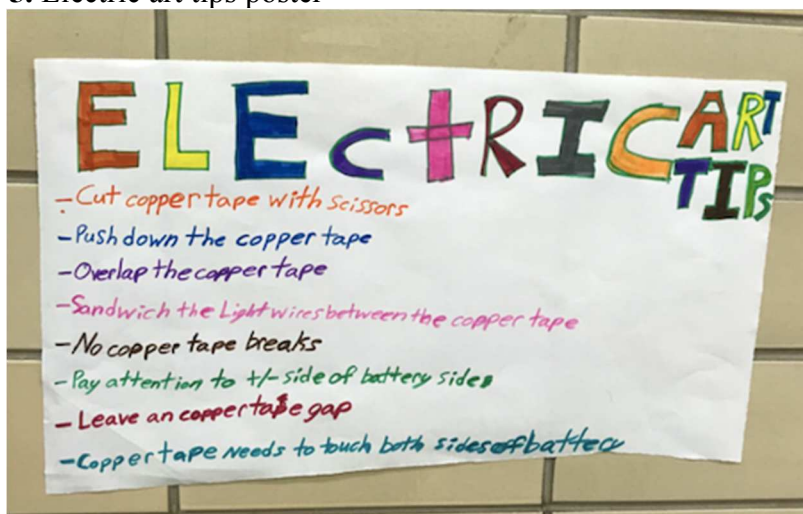 ELEctRIC ART TIPs
- Cut copper tape with scissors
- Push down the copper tape
- Overlap the copper tape
- Sandwich the Light wires between the copper tape
- No copper tape breaks
- Pay attention to +/- side of battery sides
- Leave an copper tape gap
- Copper tape needs to touch both sides of battery